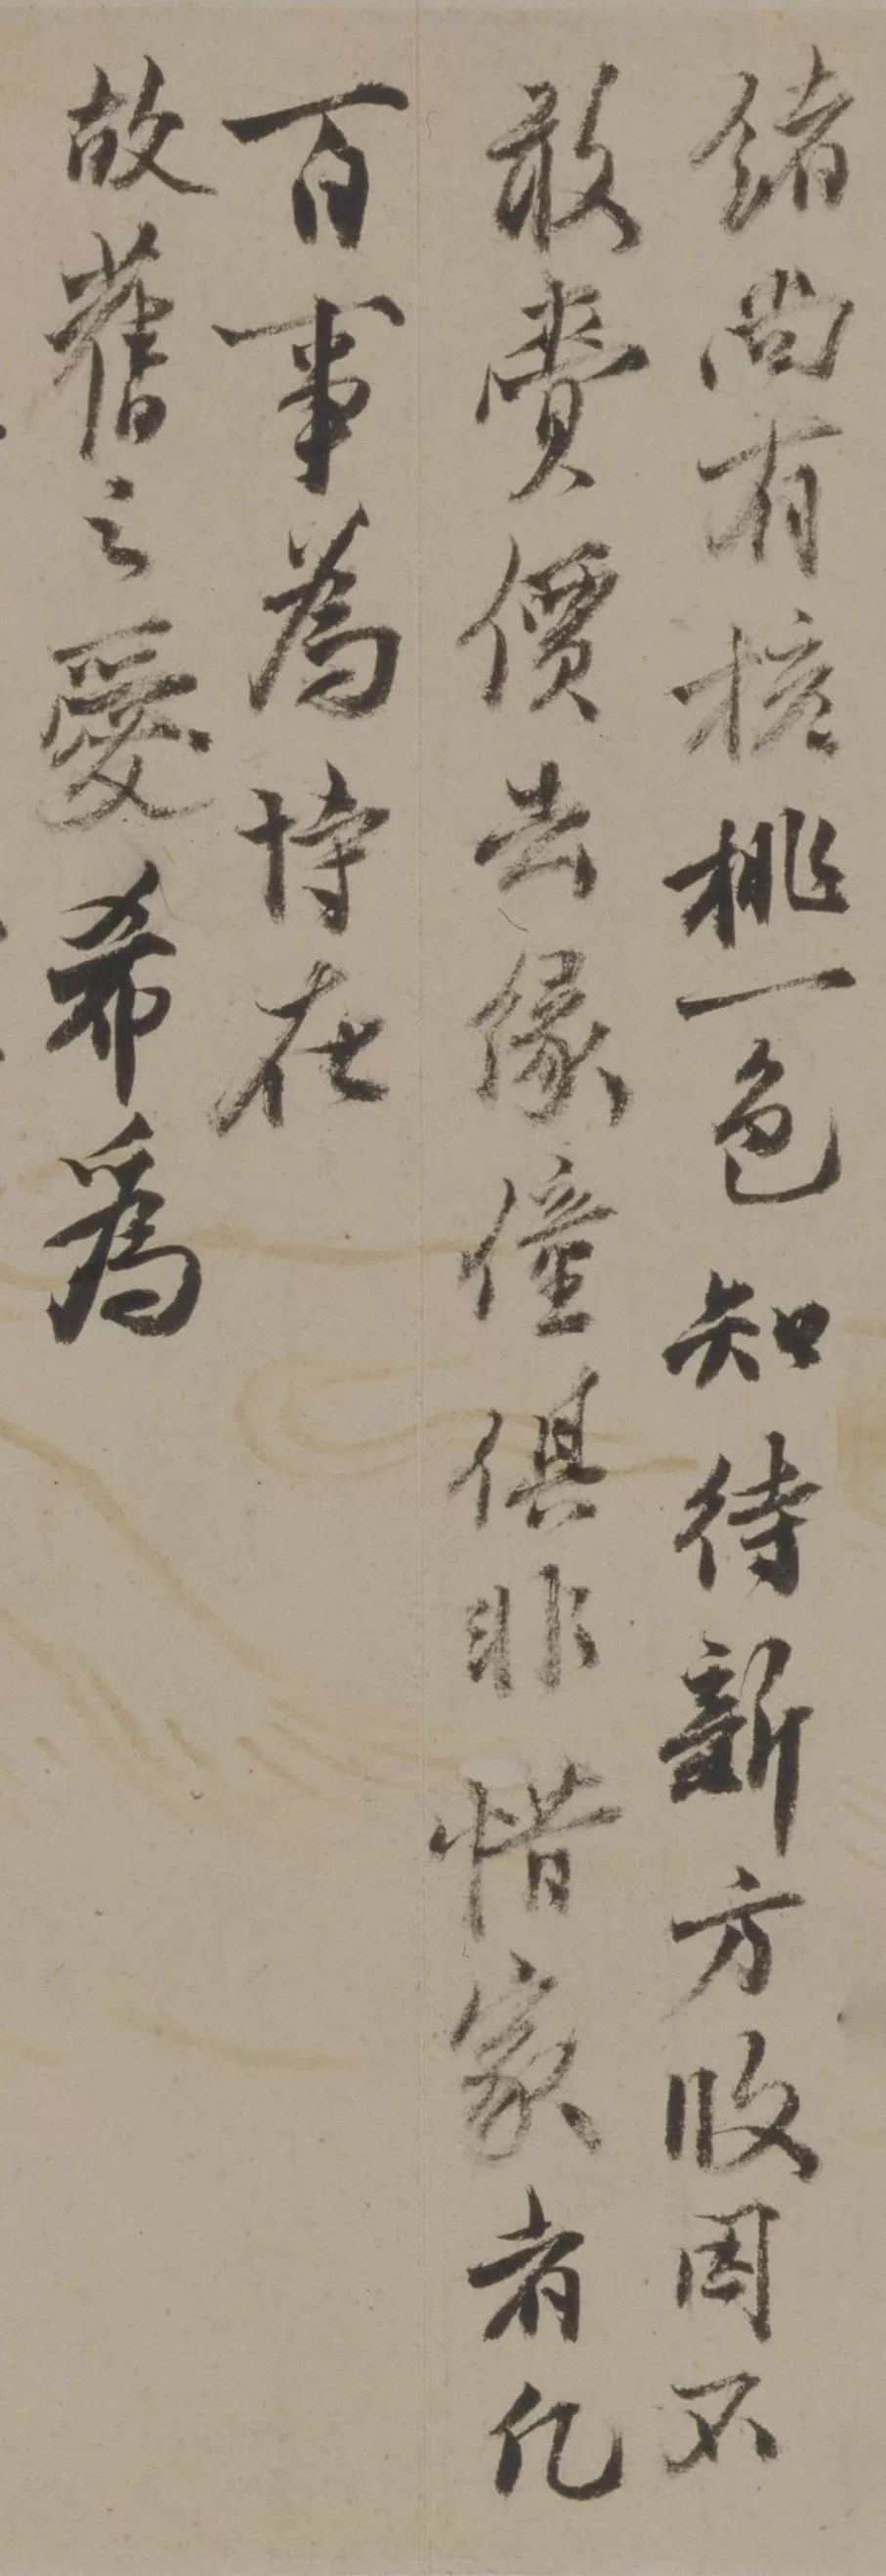 緒尚有核桃一色知待新方收因不
敢賫價去緣僮俱非惜家者凡
百事為恃在
故舊之愛希為